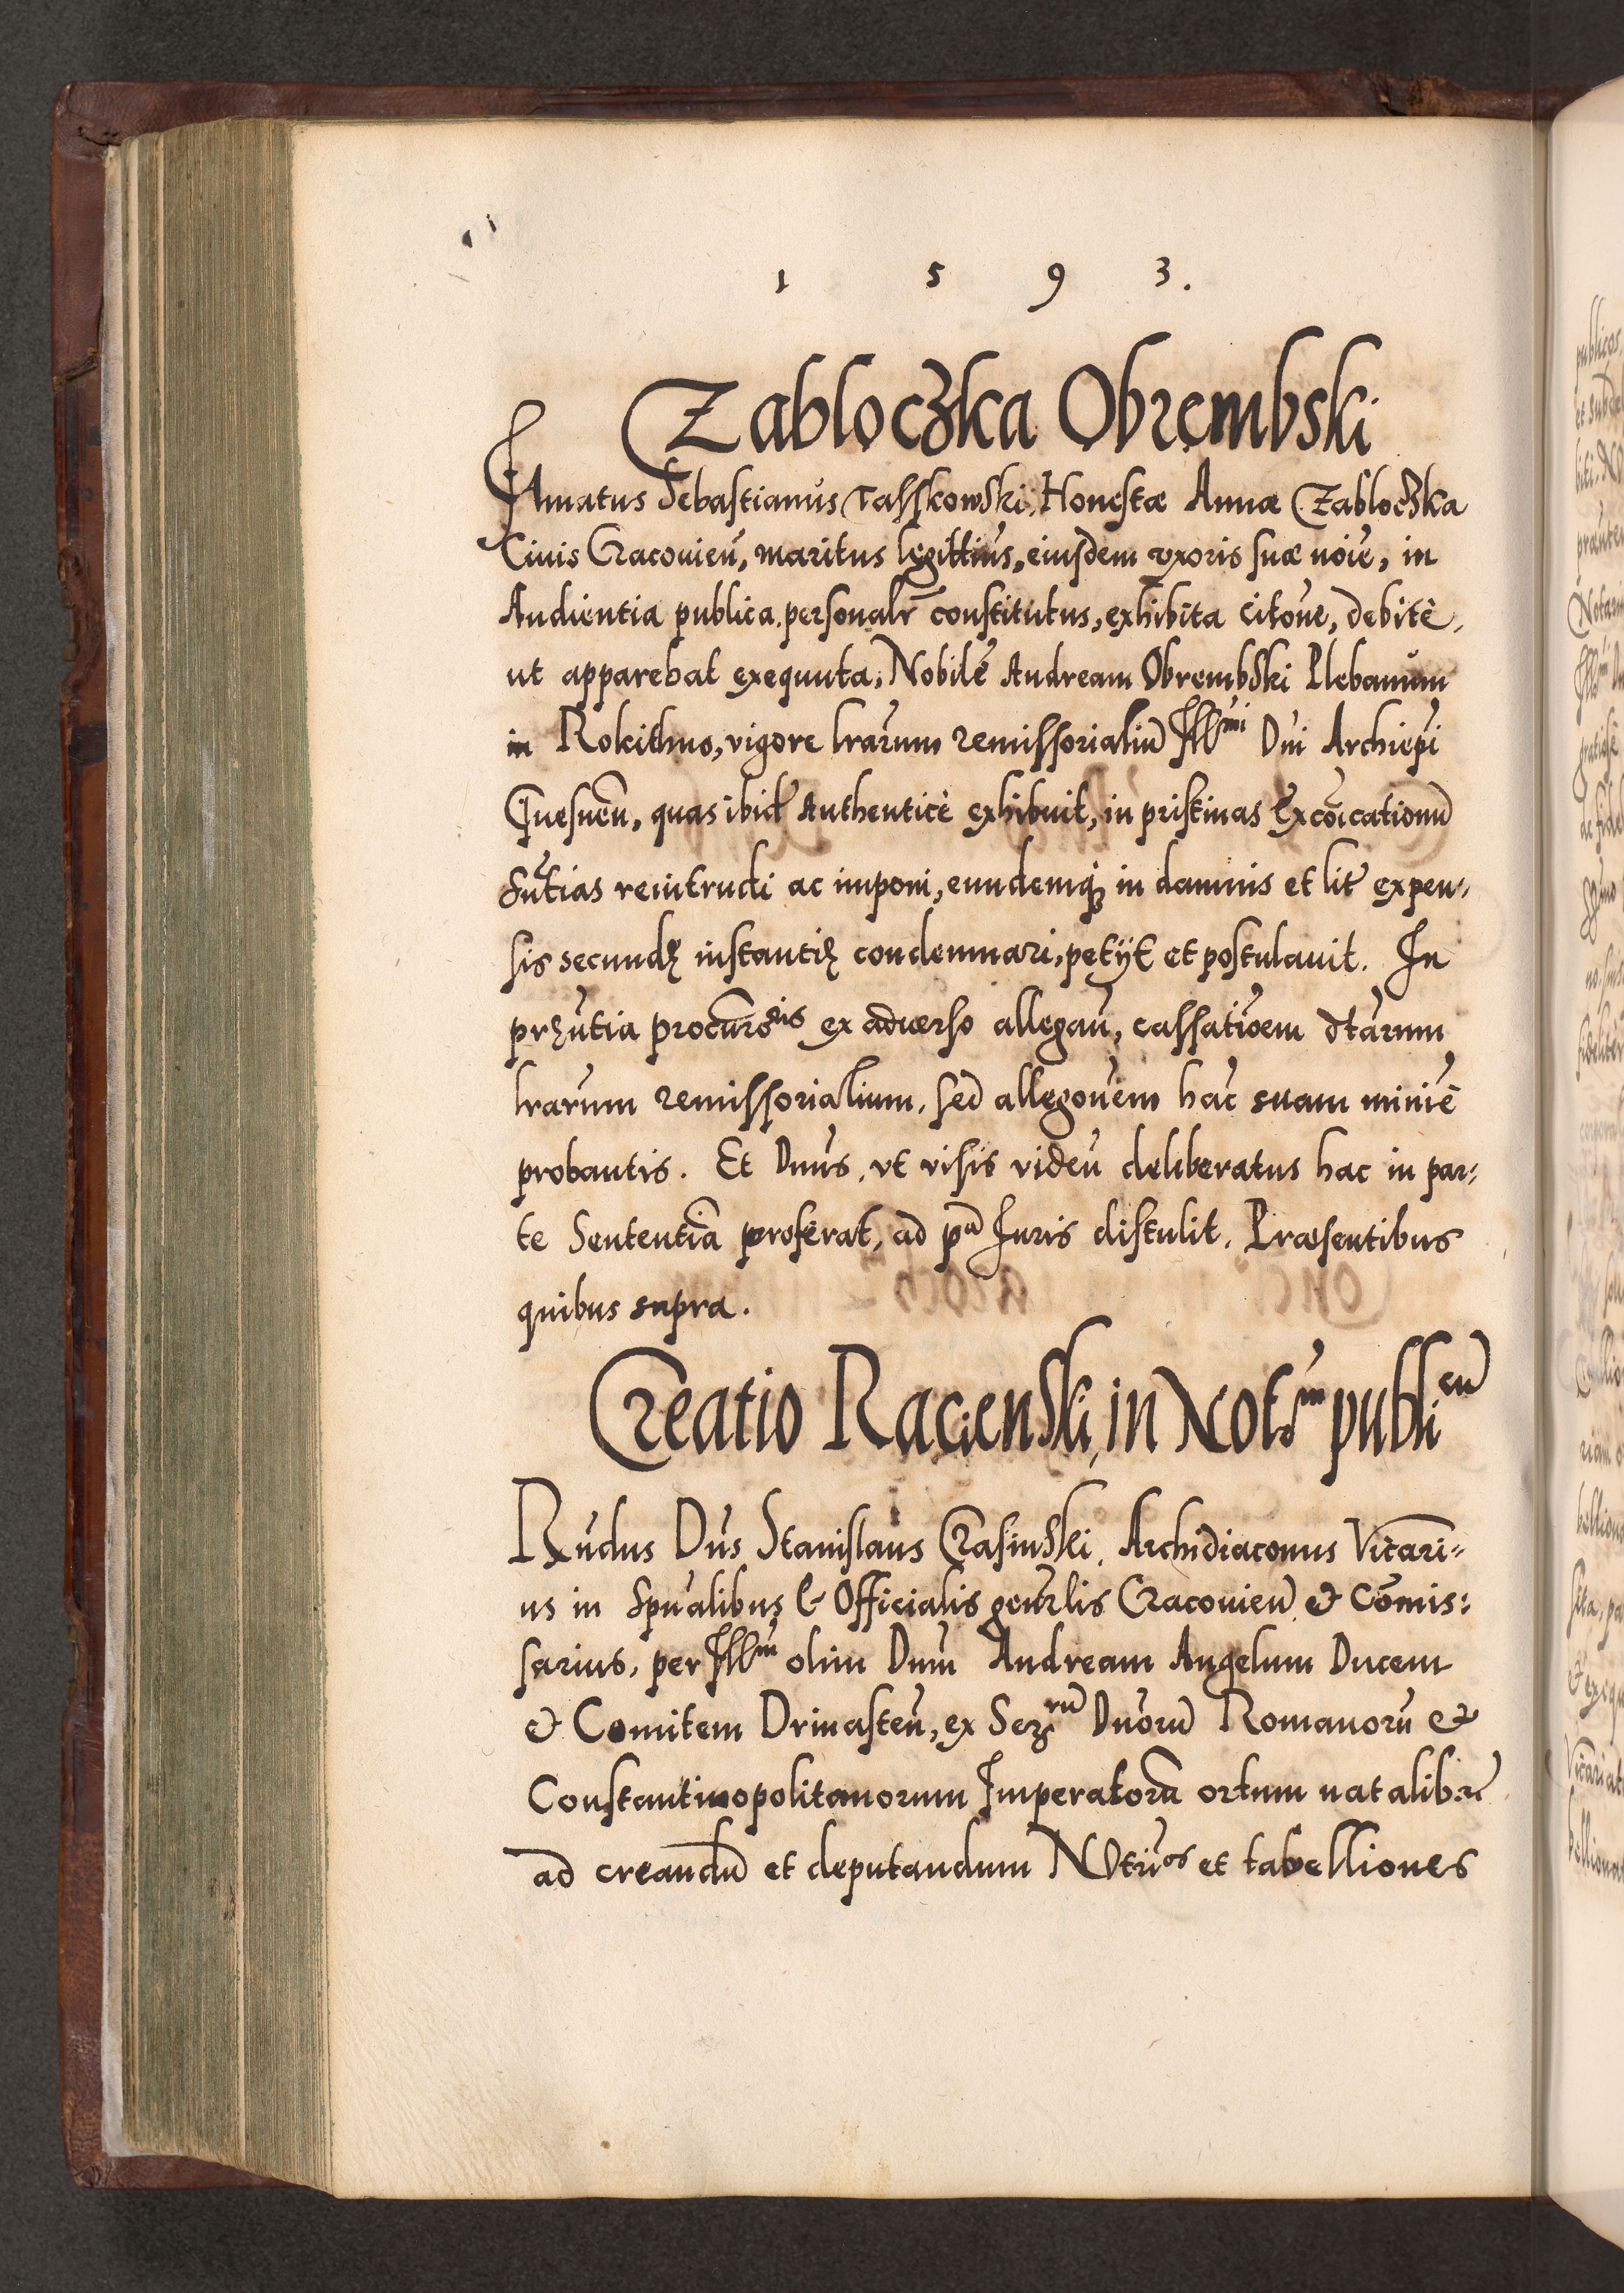 1 5 9 3.
Zabloczka Obrembski
Famatus Sebastianus Tasskowski, Honestæ Annæ Zabloczka
Civis Cracovień, maritus legittiūs, eiusdem uxoris suæ nōie, in
Audientia publica personalr̃ constitutus, exhibita citōne, debitè,
ut apparebat exequuta, Nobilē Andream Obrembski Plebanum
in Rokithno, vigore lrārum remissorialiū Illmi Dni Archiepī
Gnesneñ, quas ibid Authenticè exhibuit, in pristinas Excōicationū
Sn̄tias reintrudi ac imponi, eundemq₃ in damnis et lit expen-
sis secundę instantię condemnari, petijt et postulavit. In
pręn̄tia procur̄oris ex adverso allegañ, cassatiōem dt̄arum
lrārum remissorialium, sed allegōnem hac̄ suam minimè
probantis. Et Dnus, vt visis videñ deliberatus hac in par-
te Sententiā proferat, ad pā Juris distulit. Præsentibus
quibus supra.
Creatio Racienski, in Notrm publicū
Rn̄dus Dn̄s Stanislaus Crasinski, Archidiaconus Vicari-
us in Spūalibus & Officialis genr̄lis Cracovień & Com̄is-
sarius, per Illm olim Dnm Andream Angelum Ducem
& Comitem Drinasteñ, ex Serrū Dnorū Romanorū &
Constantinopolitanorum Imperatorū ortum natalib.
ad creandū et deputandum Notrīos et tabelliones